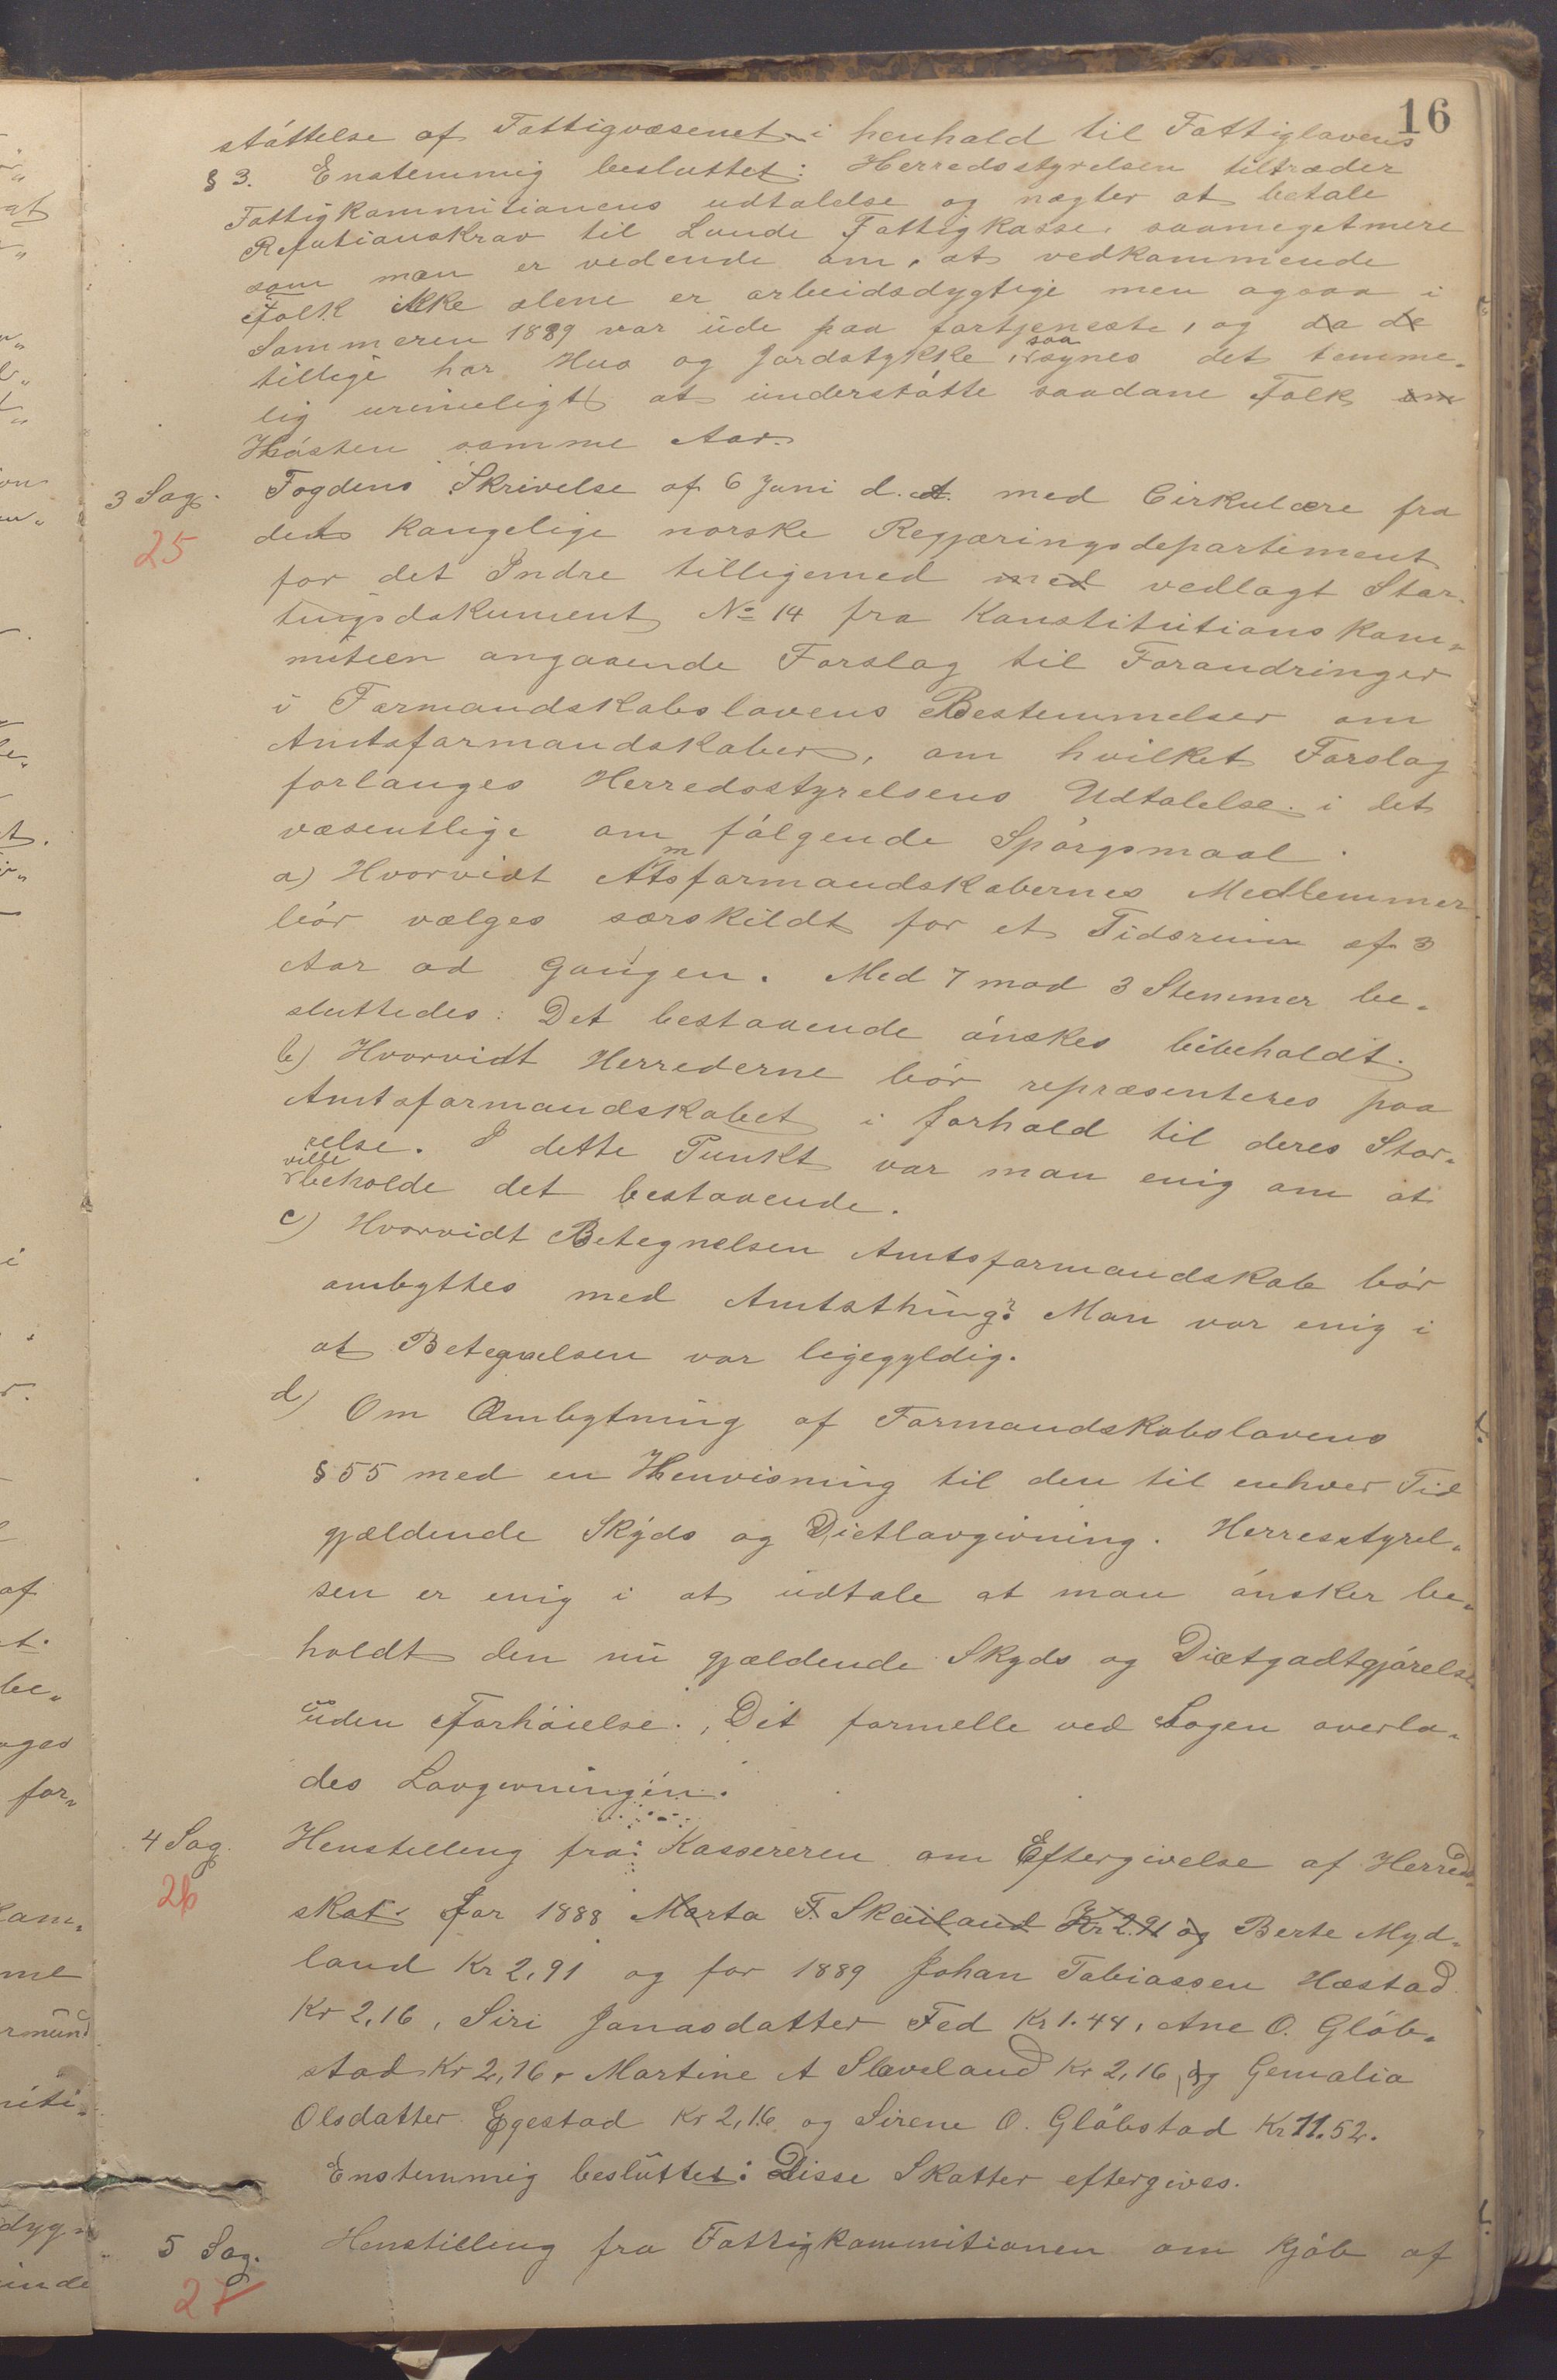 16
støttelse af Fattigvæsenet i henhold til Fattiglovens
§ 3. Enstemmig besluttet: Herredsstyrelsen tiltræder
Fattigkommitionens udtalelse og nægter at betale
Refutionskrav til Lunde Fattigkasse, saameget mere
som man er vedende om, at vedkommende
Folk ikke alene er arbeidsdygtige men ogsaa i
Sommeren 1889 var ude paa fortjeneste, og da de
tillige har Hus og Jordstykke, saa synes det temme-
lig urimeligt at understøtte saadane Folk om
Høsten samme Aar.
3 Sag. Fogdens Skrivelse af 6 Juni d. A. med Cirkulære fra
25 det kongelige norske Regjæringsdepartiment
for det Indre tilligemed med vedlagt Stor-
tingsdokument No 14 fra Konstitutions kom-
miteen angaaende Forslag til Forandringer
i Formandskabslovens Bestemmelser om
Amtsformandskaber, om hvilket Forslag
forlanges Herredsstyrelsens Udtalelse i det
væsentlige om følgende Spørgsmaal.
a) Hvorvidt Amtsformandskabernes Medlemmer
bør vælges særskildt for et Tidsrum af 3
Aar ad Gangen. Med 7 mod 3 Stemmer be-
sluttedes: Det bestaaende ønskes bibeholdt.
b) Hvorvidt Herrederne bør repræsenteres paa
Amtsformandskabet i forhold til deres Stør-
relse. I dette Punkt var man enig om at
ville beholde det bestaaende.
c) Hvorvidt Betegnelsen Amtsformandskab bør
ombyttes med Amtsthing? Man var enig i
at Betegnelsen var ligegyldig.
d) Om Ombytning af Formandskabslovens
§ 55 med en Henvisning til den til enhver Tid
gjældende Skyds og Dietlovgivning. Herresstyrel-
sen er enig i at udtale at man ønsker be-
holdt den nu gjældende Skyds og Dietgodtgjørelse
uden Forhøielse. Det formelle ved Sagen overla-
des Lovgivningen.
4 Sag. Henstilleng fra Kassereren om Eftergivelse af Herreds-
26 skat for 1888 Marta T. Skailand Kr 2.91 og Berte Myd-
land Kr 2,91 og for 1889 Johan Tobiassen Hæstad
Kr 2,16, Siri Jonasdatter Fed Kr 1.44, Ane O. Gløb-
stad Kr 2,16, Martine A Slevland Kr 2,16, og Gemalia
Olsdatter Egestad Kr 2,16 og Sirene O. Gløbstad Kr 11.52.
Enstemmig besluttet: Disse Skatter eftergives.
5 Sag. Henstilleng fra Fattigkommitionen om kjøb af
27